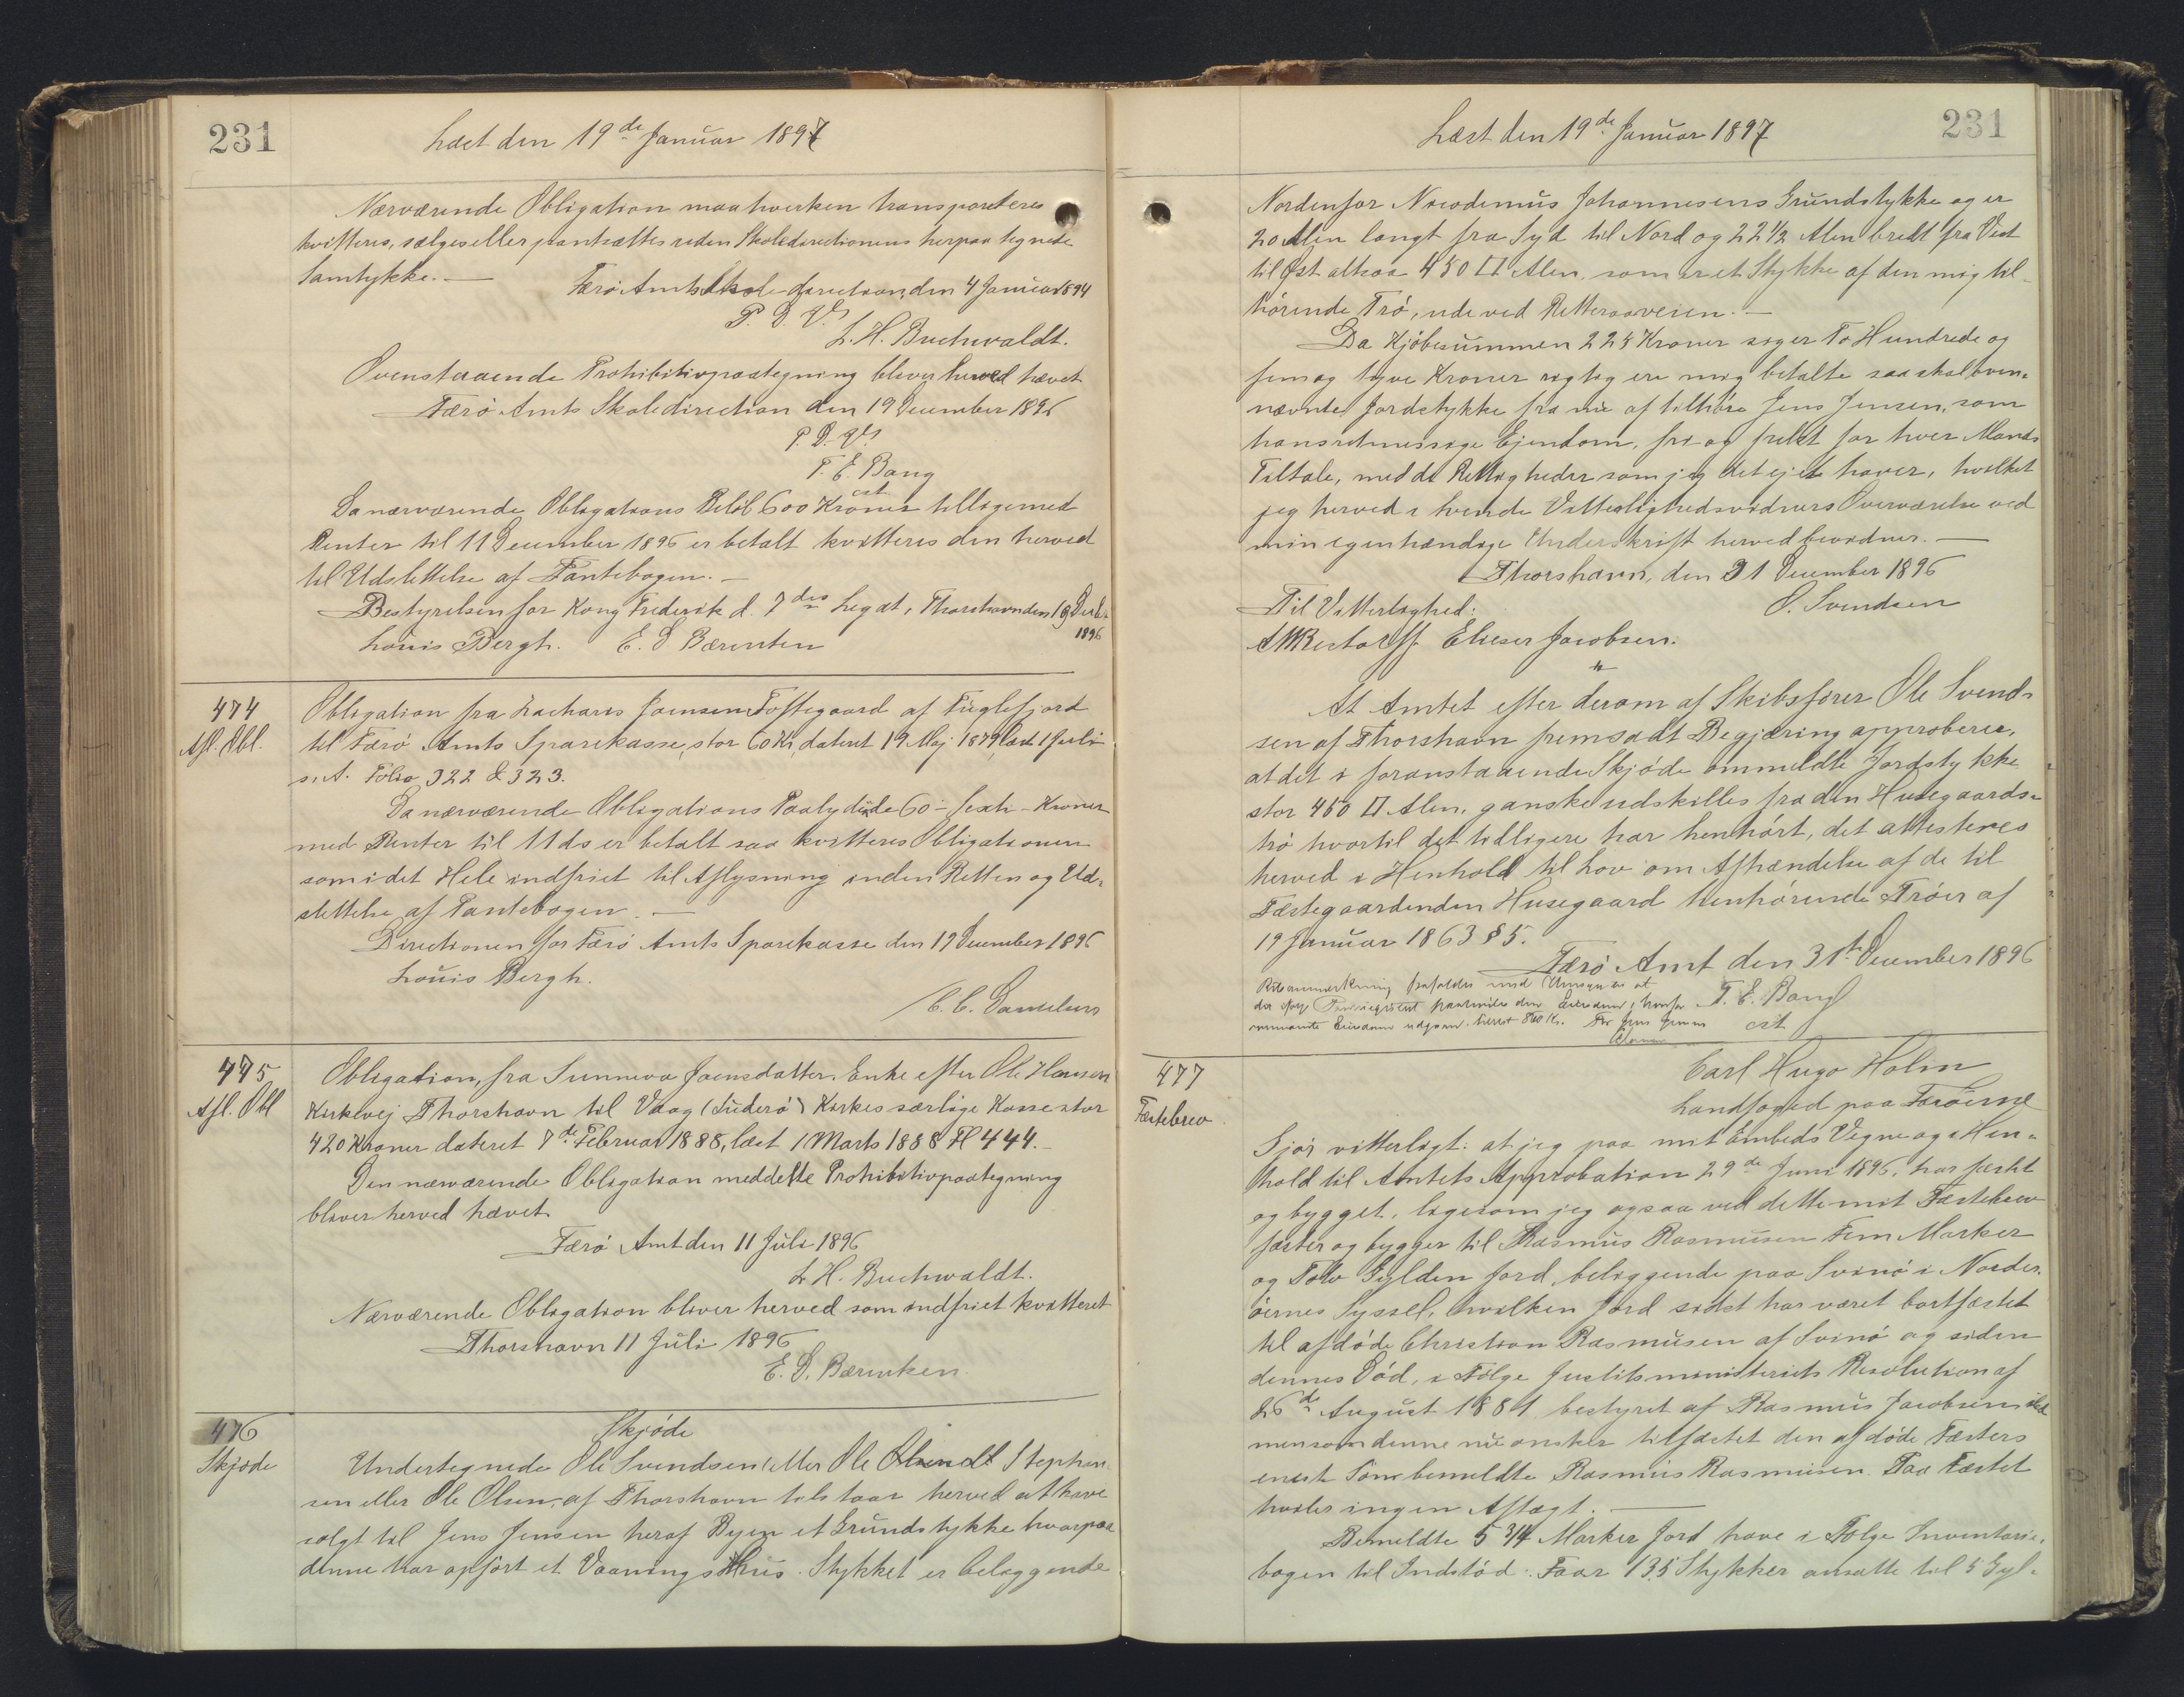 231
Læst den 19de Januar 1897
Nærværende Obligation maa hverken transporteres
kvitteres, sælges eller pantsættes uden Skoledirectionens herpaa tegnede
Samtykke. —
Færø Amts Skoledirection, den 4 Januar 1894
P. D. V.
L. H. Buchwaldt.
Ovenstaaende Prohibitivpaategning bliver herved hævet
Færø Amts Skoledirection den 19 December 1896
P. D. V.
T. E. Bang
cst
Da nærværende Obligations Beløb 600 Kroner tilligemed
Renter til 11 December 1896 er betalt kvitteres den herved
til Udslettelse af Pantebogen. —
Bestyrelsen for Kong Frederik d. 7des Legat, Thorshavn den 19 Decbr.
1896
Louis Bergh. E. S Bærentsen
474
Afl. Obl.
Obligation fra Zacharis Joensen Toftegaard af Fuglefjord
til Færø Amts Sparekasse, stor 60 Kr, dateret 19 Maj 1879, læst 1 Juli
s. A. Folio 322 & 323.
Da nærværende Obligations Paalydende 60 – sexti – Kroner
med Renter til 11 ds er betalt saa kvitteres Obligationen
som i det Hele indfriet til Aflysning inden Retten og Ud-
slettelse af Pantebogen. —
Directionen for Færø Amts Sparekasse den 19 December 1896
Louis Bergh.
C. C. Danielsen
475
Afl. Obl
Obligation, fra Sunneva Joensdatter, Enke efter Ole Hansen
Kirkevej Thorshavn til Vaag (Suderø) Kirkes særlige Kasse stor
420 Kroner dateret 7de Februar 1888, læst 1 Marts 1888 Fl 444.
Den nærværende Obligation meddelte Prohibitivpaategning
bliver herved hævet.
Færø Amt den 11 Juli 1896
L. H. Buchwaldt.
Nærværende Obligation bliver herved som indfriet kvitteret
Thorshavn 11 Juli 1896
E. S. Bærentsen.
476
Skjøde
Skjøde
Undertegnede Ole Svendsen eller Ole Stephan
sen eller Ole Olsen, af Thorshavn tilstaar herved at have
solgt til Jens Jensen heraf Byen et Grundstykke hvorpaa
denne har opført et Vaaningshus. Stykket er beliggende
Læst den 19de Januar 1897
231
Nordenfor Nicodemus Johannesens Grundstykke og er
20 Alen langt fra Syd til Nord og 22 1/2 Alen bredt fra Vest
til Øst altsaa 450 □ Alen, som er et Stykke af den mig til-
hørende Trø, ude ved Retteraaveien. —
Da Kjøbesummen 225 Kroner siger To Hundrede og
fem og tyve Kroner rigtig ere mig betalte saa skal oven-
nævnte Jordstykke fra nu af tilhøre Jens Jensen, som
hans retmessige Ejendom, fri og frelst for hver Mands
Tiltale, med de Rettigheder som jeg det ejet haver, hvilket
jeg herved i tvende Vitterlighedsvidners Overværelse ved
min egenhændige Underskrift herved bevidner. —
Thorshavn, den 31 December 1896
Til Vitterlighed: O. Svendsen
A M Restorff. Elieser Jacobsen.
At Amtet efter derom af Skibsfører Ole Svend-
sen af Thorshavn fremsadt Begjæring approberer,
at det i foranstaaende Skjøde ommeldte Jordstykke
stor 450 □ Alen, ganske udskilles fra den Husegaards-
trø hvortil det tidligere har henhørt, det attesteres
herved i Henhold til Lov om Afhændelse af de til
Fæstegaardenden Husegaard henhørende Trøer af
19 Januar 1863 § 5.
Færø Amt den 31te December 1896
T. E. Bang
cst
477
Fæstebrev
Carl Hugo Holm
Landfoged paa Færøerne
Gjør vitterligt: at jeg paa mit Embeds Vegne og i Hen-
hold til Amtets Approbation 29de Juni 1896, har fæstet
og bygget, ligesom jeg ogsaa ved dette mit Fæstebrev
fæster og bygger til Rasmus Rasmusen Fem Marker
og Tolv Gylden Jord, beliggende paa Svinø i Norder-
øernes Syssel, hvilken Jord sidst har været bortfæstet
til afdøde Christian Rasmusen af Svinø og siden
dennes Død, i Følge Justitsministeriets Resolution af
26de August 1881 bestyret af Rasmus Jacobsen
men som denne nu ønsker tilfæstet den afdøde Fæsters
eneste Søn bemeldte Rasmus Rasmusen. Paa Fæstet
hviler ingen Aftægt. —
Bemeldte 5 3/4 Marker Jord have i Følge Inventarie-
bogen til Indstød: Faar 135 Stykker ansatte til 5 Gyl-